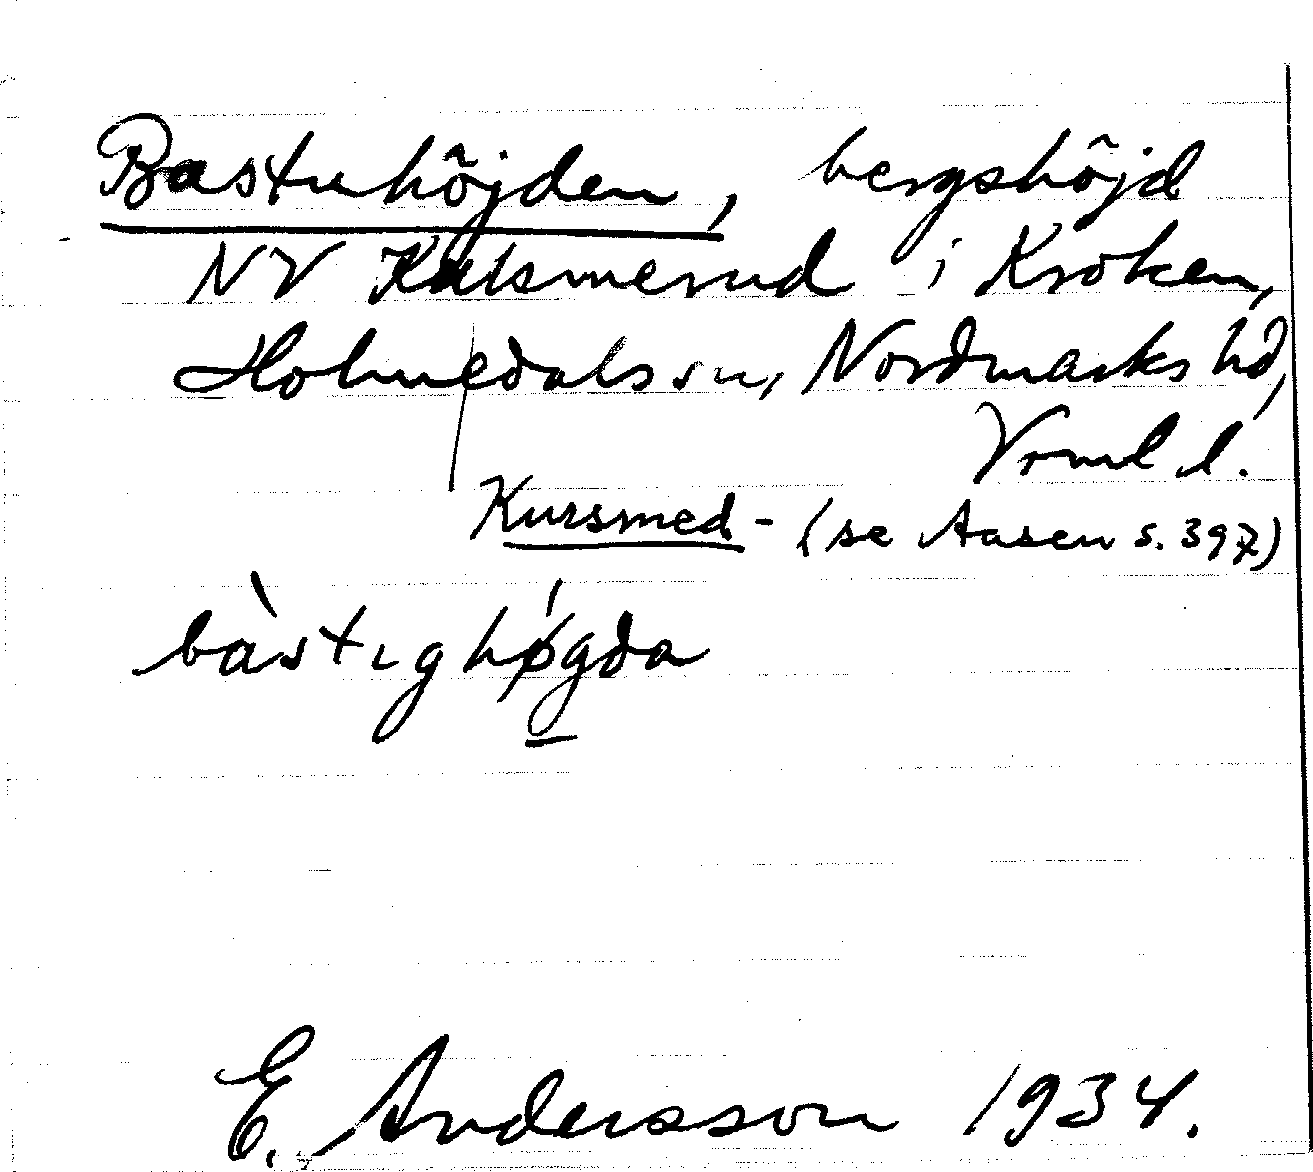 Bastuhöjden, bergshöjd
NV Kulsmerud i Kroken,
Holmedals sn, Nordmarks hd,
Vrml l.
Kursmed - (se Aasen s. 397)
bàstıghǿgda
E. Andersson 1934.